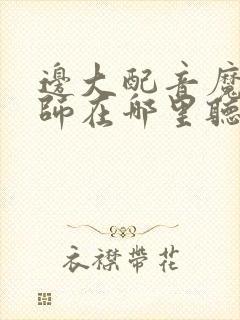 邊大配音魔
師在哪里聽
衣襟帶花